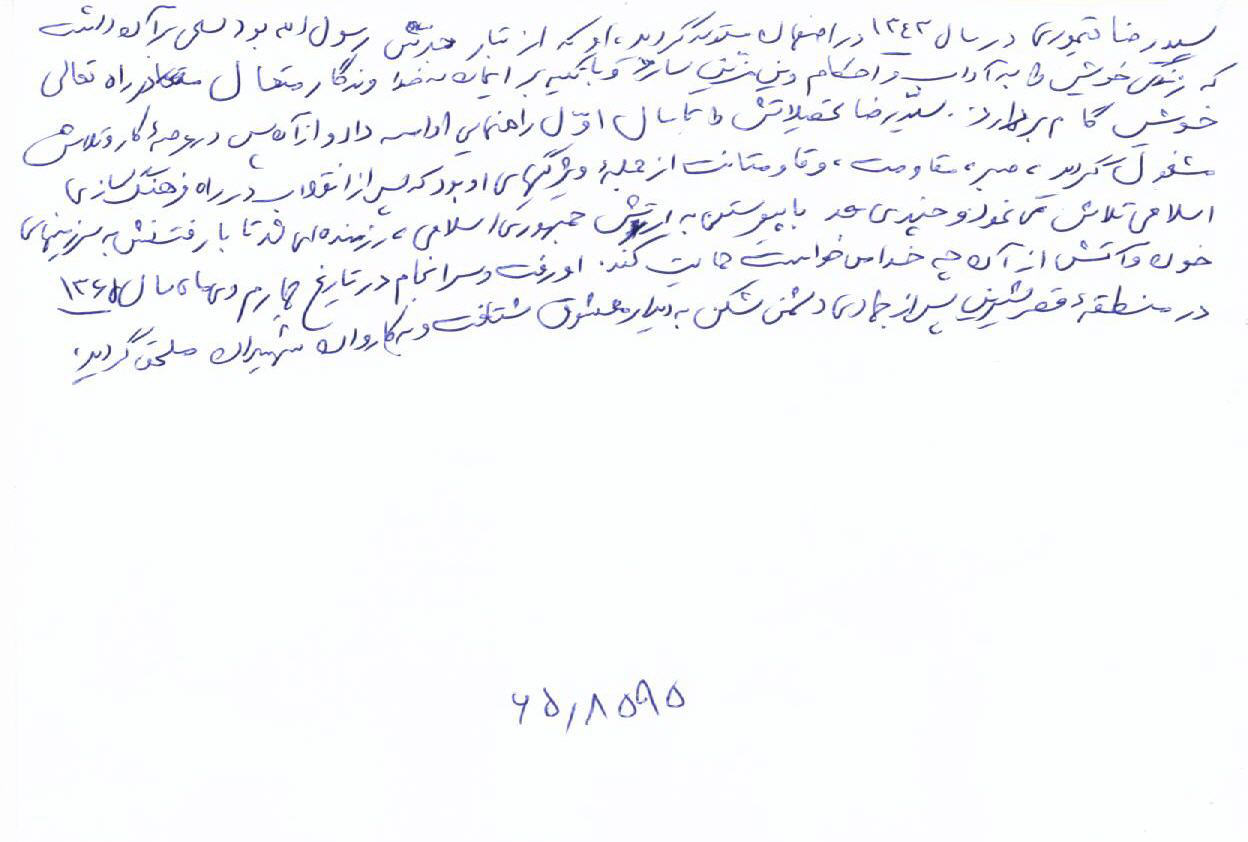 سید رضا تیموری در سال ۱۳۴۳ در اصفهان متولد گردید، او که از تبار جدش رسول الله بود سعی بر آن داشت
که زندگی خویش را به آداب و احکام دین مزین سازد و با تکیه بر ایمان به خداوندگار متعال در راه تعالی
خویش گام بردارد. سید رضا تحصیلاتش را تا سال اول راهنمایی ادامه داد و از آن پس در عرصهٔ کار و تلاش
مشغول گردید، صبر، مقاومت، وقار و متانت از جملهٔ ویژگیهای او بود که پس از انقلاب در راه فرهنگ سازی
اسلامی تلاش می نمود و چندی بعد با پیوستن به ارتش جمهوری اسلامی، رزمنده ای شد تا با رفتنش به سرزمینهای
خون و آتش از آن چه خدا می خواست حمایت کند. او رفت و سرانجام در تاریخ چهارم دی ماه سال ۱۳۶۵
در منطقهٔ قصرشیرین پس از جهادی دشمن شکن به دیدار معشوق شتافت و به کاروان شهیدان ملحق گردید.
۶۵/۸۵۹۵